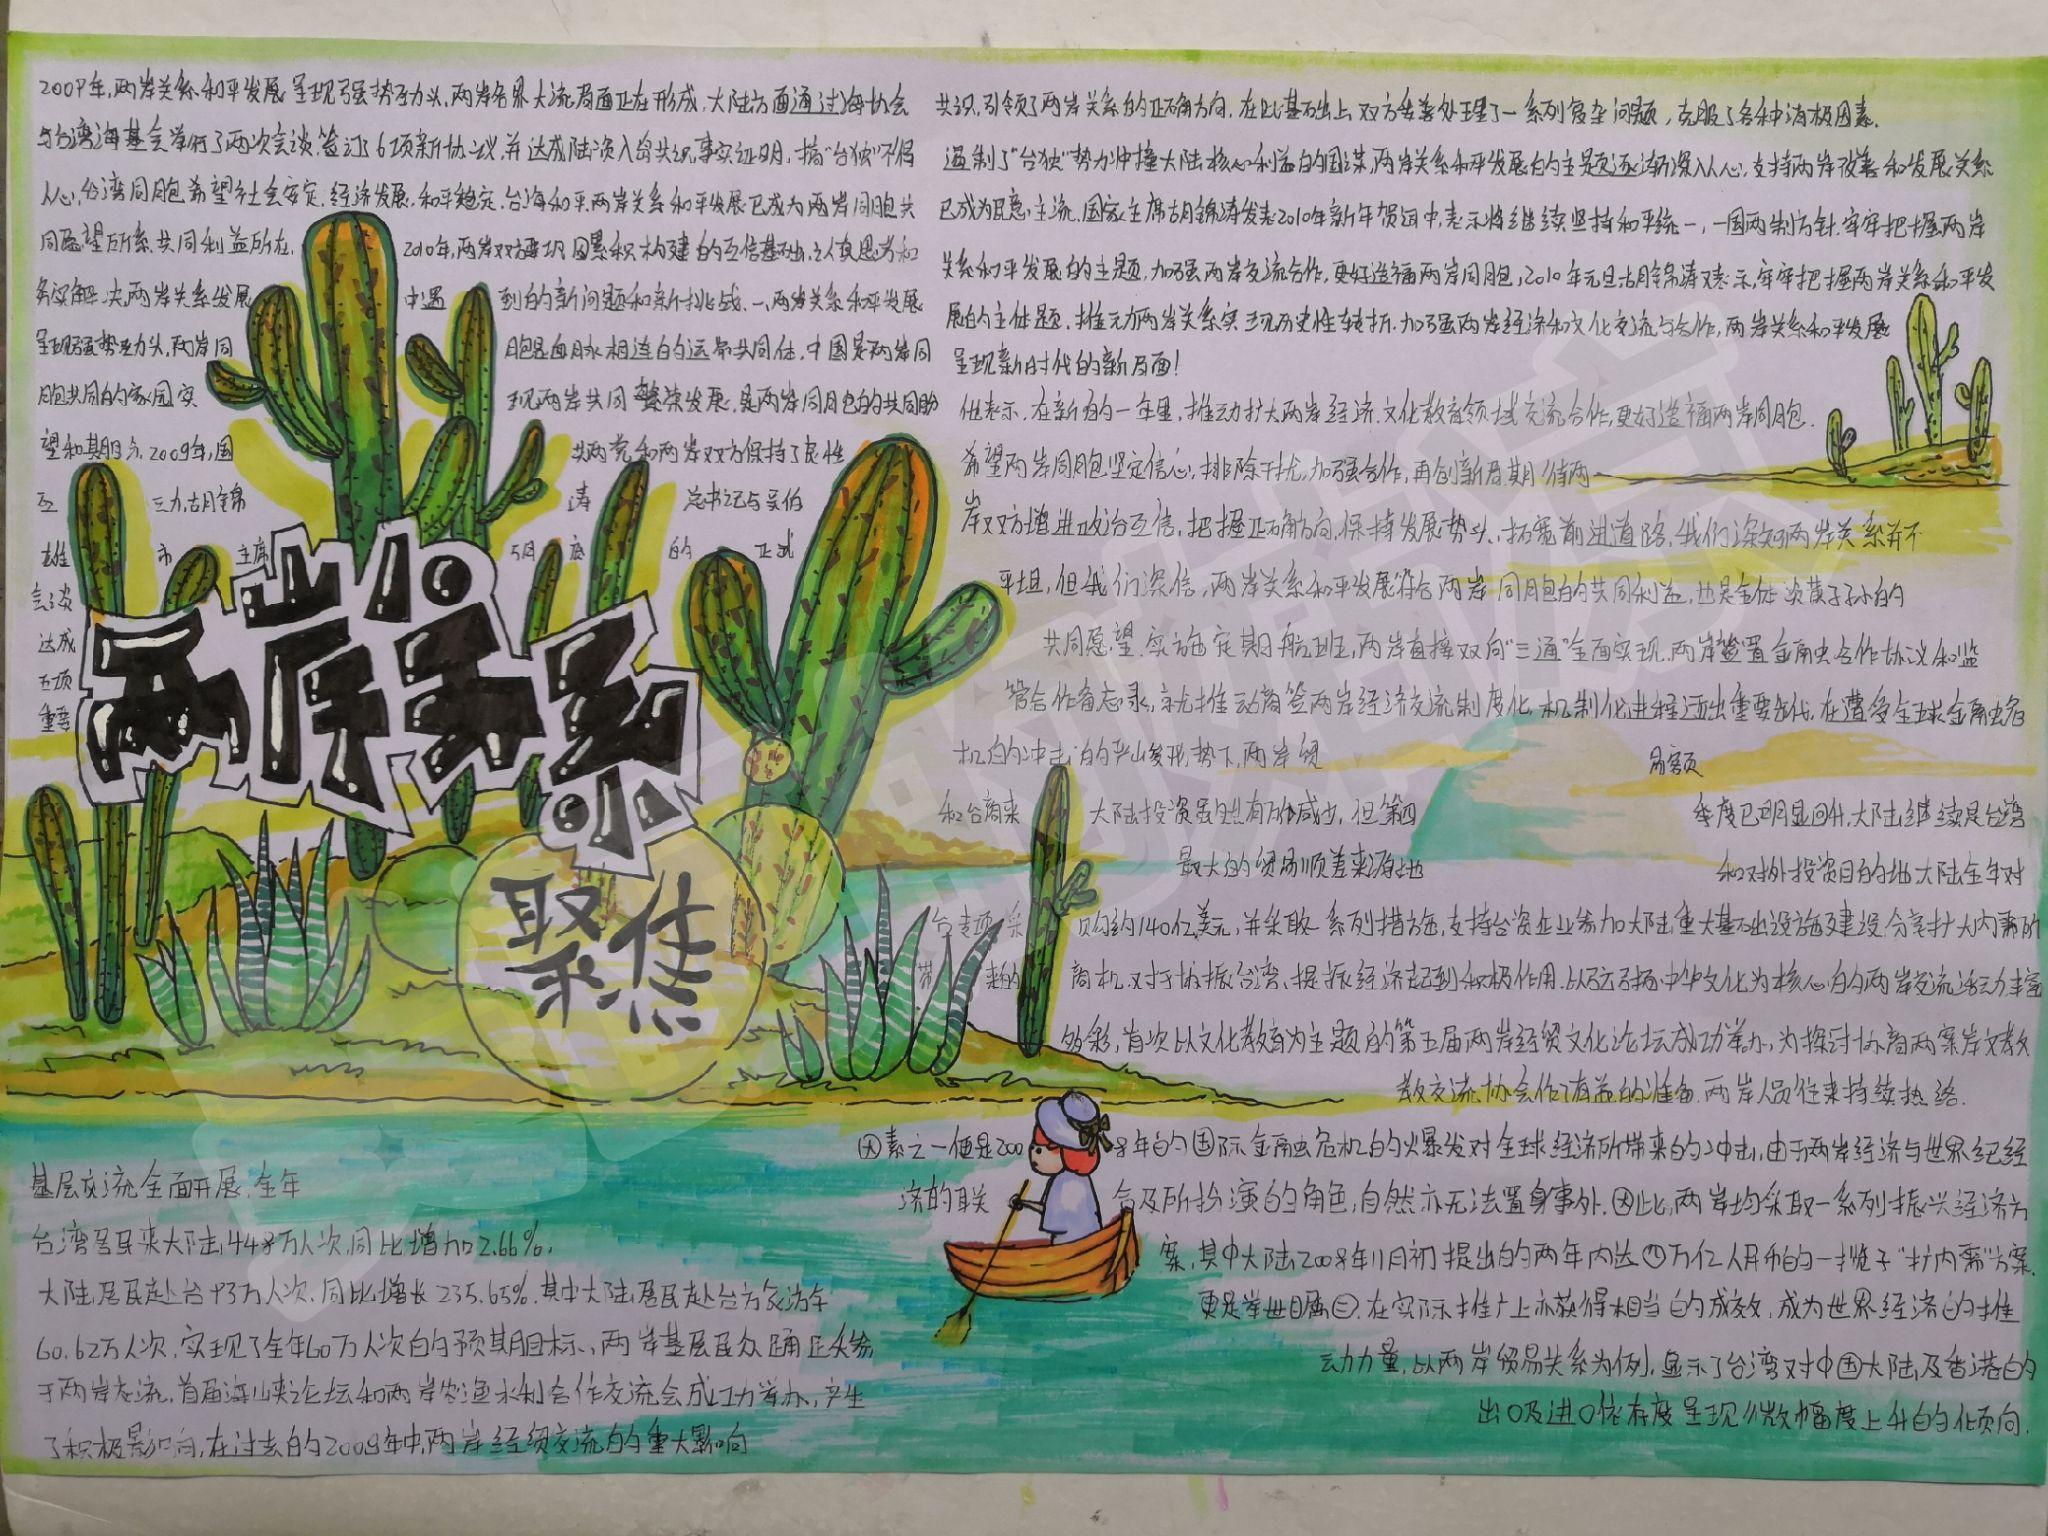 2009年,两岸关系和平发展呈现强势劲头,两岸各界大流局面正在形成,大陆方面通过海协会
与台湾海基会举行了两次会谈,签订了6项新协议,并达成陆资入岛共识,事实证明,搞"台独"不得
人心,台湾同胞希望社会安定,经济发展,和平稳定,台海和平,两岸关系和平发展已成为两岸同胞共
同愿望所系,共同利益所在, 2010年,两岸双方要巩固累积构建的互信基础,认真思考和
务实解决两岸关系发展 中遇 到的新问题和新挑战.一、两岸关系和平发展
呈现强势劲头,两岸同 胞是血脉相连的运命共同体,中国是两岸同
胞共同的家园,实 现两岸共同繁荣发展,是两岸同胞的共同盼
望和期盼,2009年,国 共两党和两岸双方保持了良性
互 动,胡锦 涛 总书记与吴伯
雄 市 主席 5月 底 的 正式
会谈
达成
五项
重要
两岸关系
聚焦
共识,引领了两岸关系的正确方向,在此基础上,双方妥善处理了一系列复杂问题,克服了各种消极因素.
遏制了"台独"势力冲撞大陆核心利益的图谋,两岸关系和平发展的主题逐渐深入人心,支持两岸改善和发展关系
已成为民意主流.国家主席胡锦涛发表2010年新年贺词中,表示将继续坚持和平统一,一国两制方针,牢牢把握两岸
关系和平发展的主题,加强两岸交流合作,更好造福两岸同胞,2010年元旦,胡锦涛又表示,牢牢把握两岸关系和平发
展的主体题,推动两岸关系实现历史性转折,加强两岸经济和文化交流与合作,两岸关系和平发展
呈现新时代的新局面!
他表示,在新的一年里,推动扩大两岸经济.文化教育领域交流合作,更好造福两岸同胞.
希望两岸同胞坚定信心,排除干扰,加强合作,再创新局,期待两
岸双方增进政治互信,把握正确方向,保持发展势头,拓宽前进道路,我们深知两岸关系并不
平坦,但我们深信,两岸关系和平发展符合两岸同胞的共同利益,也是全体炎黄子孙的
共同愿望.实施定期航班,两岸直接双向"三通"全面实现,两岸签置金融合作协议和监
管合作备忘录,就推动商签两岸经济交流制度化,机制化进程迈出重要步伐,在遭受全球金融危
机的冲击的严峻形势下,两岸贸 易额
和台商来 大陆投资虽然有所减少,但第四 季度已明显回升,大陆继续是台湾
最大的贸易顺差来源地 和对外投资目的地,大陆全年对
台专项采 购约140亿美元,并采取一系列措施,支持台资企业参加大陆重大基础设施建设,分享扩大内需所
带 来的 商机,对于协振台湾、提振经济起到积极作用.以弘扬中华文化为核心的两岸交流活动丰富
多彩,首次以文化教育为主题的第五届两岸经贸文化论坛成功举办,为探讨协商两案岸文教
教交流协会作了有益的准备.两岸人员往来持续热络.
基层交流全面开展,全年
台湾居民来大陆,448万人次,同比增加2.66%,
大陆居民赴台93万人次,同比增长235.65%.其中大陆居民赴台方家访年
60.62万人次,实现了全年60万人次的预期目标、两岸基层民众踊跃参
于两岸交流,首届海峡论坛和两岸农渔水利合作交流会成功举办,产生
了积极影响,在过去的2009年中,两岸经贸交流的重大影响
因素之一便是2008年的国际金融危机的爆发对全球经济所带来的冲击,由于两岸经济与世界纪经
济的联 合及所扮演的角色,自然亦无法置身事外.因此,两岸均采取一系列振兴经济方
案,其中大陆2008年11月初提出的两年内达④万亿人民币的一揽子"扩内需"方案,
更是举世瞩目.在实际推广上亦获得相当的成效,成为世界经济的推
动力量,以两岸贸易关系为例,显示了台湾对中国大陆及香港的
出口及进口依存度呈现微幅度上升的倾向.